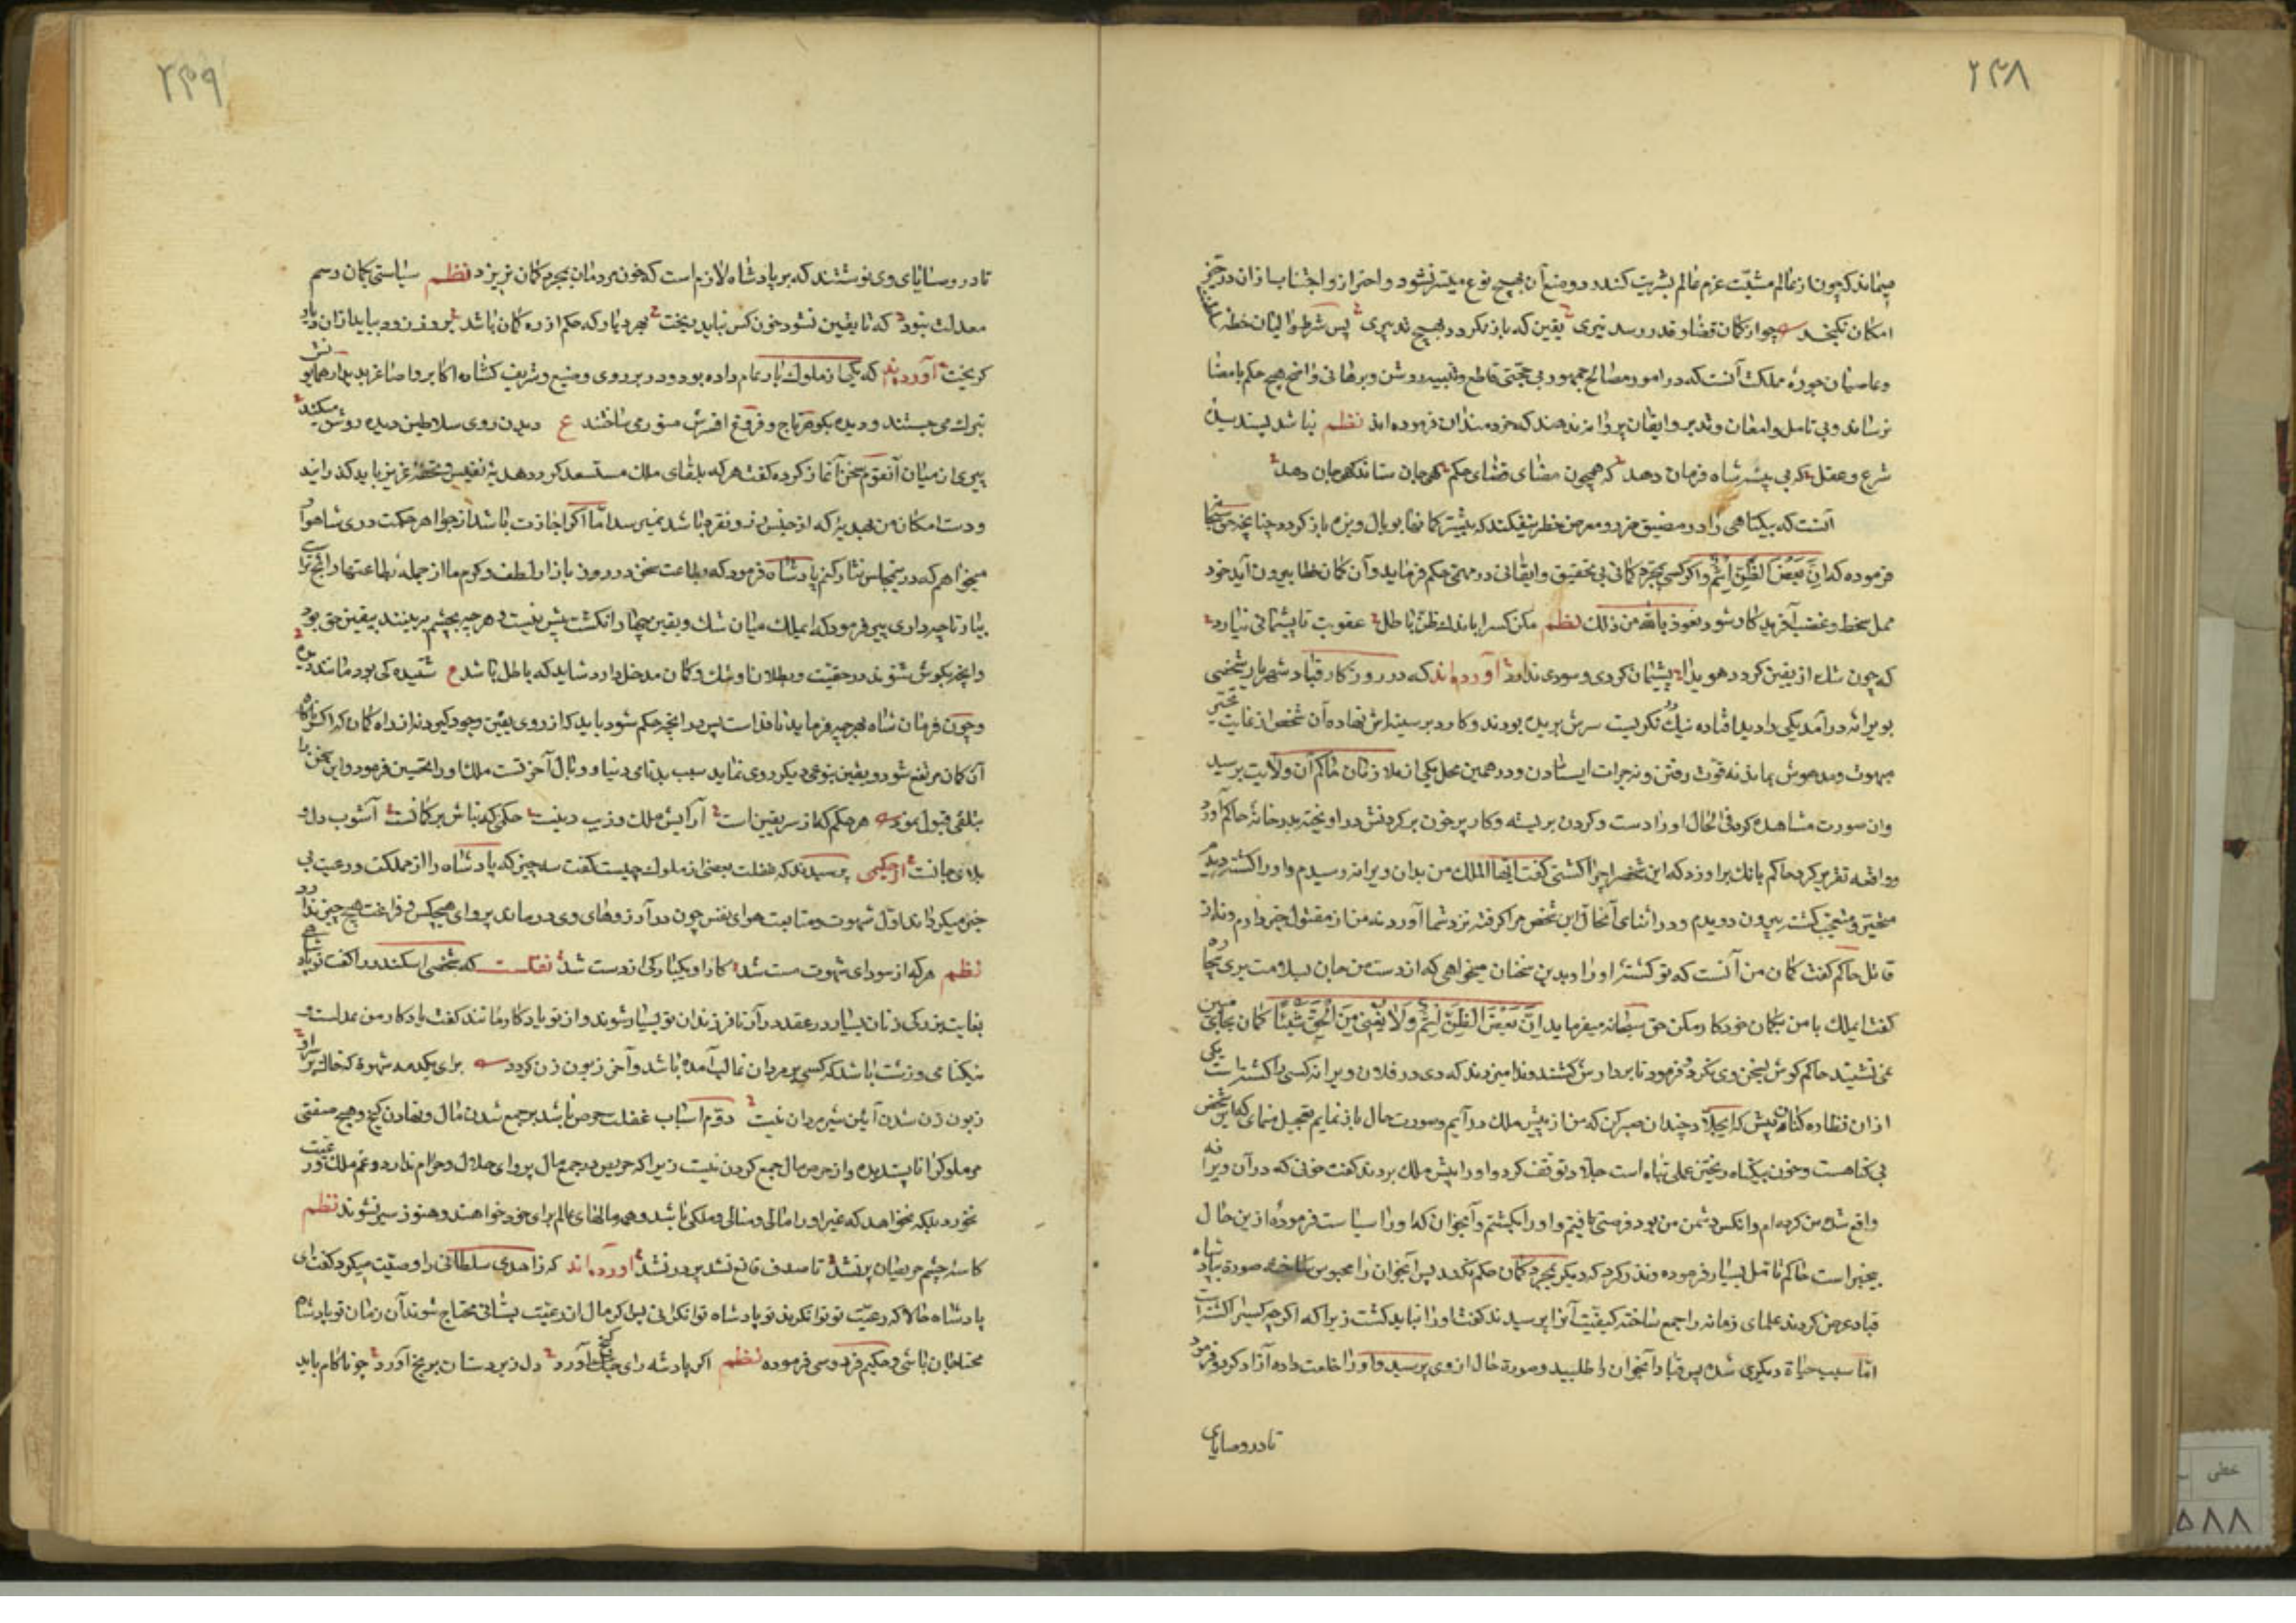 ۲۴۸
میماند که چون از عالم مشیّت عزم عالم بشریت کند رد و منع آن بهیچ نوع میسّر نشود و احتراز و اجتناب از آن در حیّز
امکان نگنجد چو از کمان قضا و قدر رسد تیری یقین که باز نگردد بهیچ تدبیری پس شرط والیان خطه
و عاصیان حوزهٔ مملکت آنست که در امور مصالح جمهور بی حجّتی قاطع و بیّنه روشن و برهانی واضح هیچ حکم بامضا
نرسانند و بی تامل و امعان و تدبر و ایقان پروانه ندهند که خردمندان فرموده اند نظم نباشد پسندیدهٔ
شرع و عقل که بی بینه شاه فرمان دهد که همچون مضای قضای حکم گهی جان ستاند گهی جان دهد
آنست که بیگناهی را در مضیق خرد و معرض خطر نیفکند که بیشتر گمانها بوبال و بزه باز گردد چنانچه حق سبحانه
فرموده که اِنَّ بَعْضَ الظَّنِّ اِثْمٌ و اگر کسی بمجرد گمانی بی تحقیق و ایقانی در مهمّی حکم فرماید و آن گمان خطا بیرون آید خود
محل سخط و غضب آفریدکار شود نعوذ بالله من ذلک نظم مکن کسرا باندک ظنّ باطل عقوبت تا پشیمانی نیارد
که چون شک از یقین گردد هویدا پشیمان گردی و سودی ندارد آورده‌اند که در روزکار قباد شهریار شخصی
بویرانهٔ درآمد یکی را دید افتاده نیک نگریست سرش بریده بودند و کارد بر سینه‌اش نهاده آن شخص از غایت تحیّر
مبهوت و مدهوش بماند نه قوت رفتن و نه جرات ایستادن و در همین محل یکی از ملازمان حاکم آن ولایت برسید
وان صورت مشاهده کرد فی الحال او را دست و گردن بر بسته و کارد پر خون بر گردنش در اویخته بدر خانهٔ حاکم آورد
و واقعه تقریر کرد حاکم بانک براورد که این شخص را چرا کشتی گفت ایّها الملک من بدان ویرانه رسیدم و او را کشته دیدم
متحیّر و متعجّب کشته بیرون دویدم و در اثنای آنحال این شخص مرا گرفته نزد شما آورد نه من از مقتول خبر دارم و نه از
قاتل حاکم گفت گمان من آنست که تو کشتهٔ او را و بدین سخنان میخواهی که از دست من جان بسلامت بری بیچاره
گفت ایملک با من بگمان خود کار مکن حق سبحانه میفرماید اِنَّ بَعْضَ الظَّنِّ اِثْمٌ وَلَا یُغْنِی مِنَ الْحَقِّ شَیْئًا گمان بجای یقین
نمی نشیند حاکم گوش بسخن وی نکرد و فرمود تا بر دارش کشند و ندا میزدند که دی در فلان ویرانه کسی را کشته است یکی
از ان نظاره کنان پیش که ای جلّاد چندان صبر کن که من از پیش ملک در آیم و صورت حال باز نمایم تعجیل منمای که این شخص
بی گناهست و خون بیگناه ریختن عملی تباه است جلّاد توقف کرد و او را پیش ملک بردند گفت خونی که در آن ویرانه
واقع شده من کرده ام و انکس دشمن من بود فرصتی یافتم و او را بکشتم و آنجوان که او را سیاست فرمودهٔ از ین حال
بیخبر است حاکم تامّل بسیار فرموده و نذر کرد که دیگر بمجرد گمان حکم نکند پس آنجوان را محبوس ساخته صورة بپادشاه
قباد عرض کردند علمای زمانه را جمع ساخته کیفیّت آنرا پرسیدند گفت او را نباید کشت زیرا که اگر چه کسیرا کشته است
امّا سبب حیاة دیگری شده پس قباد آنجوان را طلبید و صورة حال از وی پرسید و او را خلعت داده آزاد کرد و فرمود
تا در وصایای
۲۴۹
تا در وصایای وی نوشتند که بر پادشاه لازم است که خون مردمان بمجرد گمان نریزد نظم سیاستی بگمان رسم
معدلت نبود که تا یقین نشود خون کس نباید ریخت بهر دیار که حکم از ره گمان باشد بروز و زود بباید از ان دیار
گریخت آورده‌اند که یکی از ملوک بار عام داده بود و در بر روی وضیع و شریف گشاده اکابر و اصاغر بدیدار همایونش
تبرک می جستند و دیده بگوهر تاج و فروغ افسرش منور می ساختند ع دیدن روی سلاطین دیده روشن میکند
پیری از میان آنقوم سخن آغاز کرده گفت هر که بلقای ملک مستسعد گردد هدیهٔ نفیس و تحفهٔ عزیز باید گذرانید
و دست امکان من بهدیهٔ که از جنس زر و نقره باشد نمیرسد امّا اگر اجازت باشد از جواهر حکمت درّی شاهوار
میخواهم که در ینجلس نثار کنم پادشاه فرمود که بضاعت سخن در روز بازار لطف و کرم ما از جمله بضاعتها رایج تر است
بیار تا چه داری پیر فرمود که ایملک میان شک و یقین چهار انگشت بیش نیست و هر چه بچشم بینند بیقین حق بود
و آنچه بگوش شنوند در حقیّت و بطلان او شک و گمان مدخل دارد شاید که باطل باشد ع شنیده کی بود مانند دیده
و چون فرمان شاه بهر چه فرماید نافذ است پس در انچه حکم شود باید که از روی یقین وجود گیرد نه از راه گمان که اگر ناگاه
آن گمان مرتفع شود و یقین بنوعی دیگر روی نماید سبب بدنامی دنیا و وبال آخرتست ملک او را تحسین فرمود و این سخن را
بتلقی قبول نمود هر حکم که از سر یقین است آرایش ملک و زیب دینست حکمی که بناش بر گمانست آشوب دل و
بلای جانست از حکیمی پرسیدند که غفلت بعضی از ملوک چیست گفت سه چیز که پادشاه را از مملکت و رعیت بی
خبر میکرداند اوّل شهوت و متابعت هوای نفس چون در آرزوهای وی درماند پروای هیچکس و فراغت هیچ چیز ندارد
نظم هر که از سودای شهوت مست شد کار او یکبارگی از دست شد نقلست که شخصی اسکندر را گفت تو پادشاهی
بغایت بزرگ زنان بسیار در عقد در آر تا فرزندان تو بسیار شوند و از تو یادگار مانند گفت یادگار من عدلست و
نیکنامی و زشت باشد که کسی بر مردان غالب آمده باشد و آخر زبون زن گردد برای یکدمه شهوة که خاک بر سر او
زبون زن شدن آیین شیر مردان نیست دوّم اسباب غفلت حرص باشد بر جمع شدن مال و نهادن گنج و هیچ صفتی
مر ملوک را ناپسندیده تر از حرص مال جمع کردن نیست زیرا که حریص در جمع مال پروای حلال و حرام ندارد و غم ملک و رعیت
نخورد بلکه نخواهد که غیر او را مالی و منالی و ملکی باشد و همه مالهای عالم برای خود خواهند و هنوز سیر نشوند نظم
کاسهٔ چشم حریصان پر نشد تا صدف قانع نشد پر در نشد آورده‌اند که زاهدی سلطانی را وصیّت میکرد گفت ای
پادشاه حالا که رعیّت تو توانگرند تو پادشاه توانگرانی پس اگر مال از رعیّت بستانی محتاج شوند آن زمان تو پادشاه
محتاجان باشی و حکیم فردوسی فرموده نظم اگر پادشه رای گنج آورد دل زیردستان برنج آورد چو ناکام باید
خطی
۵۸۸